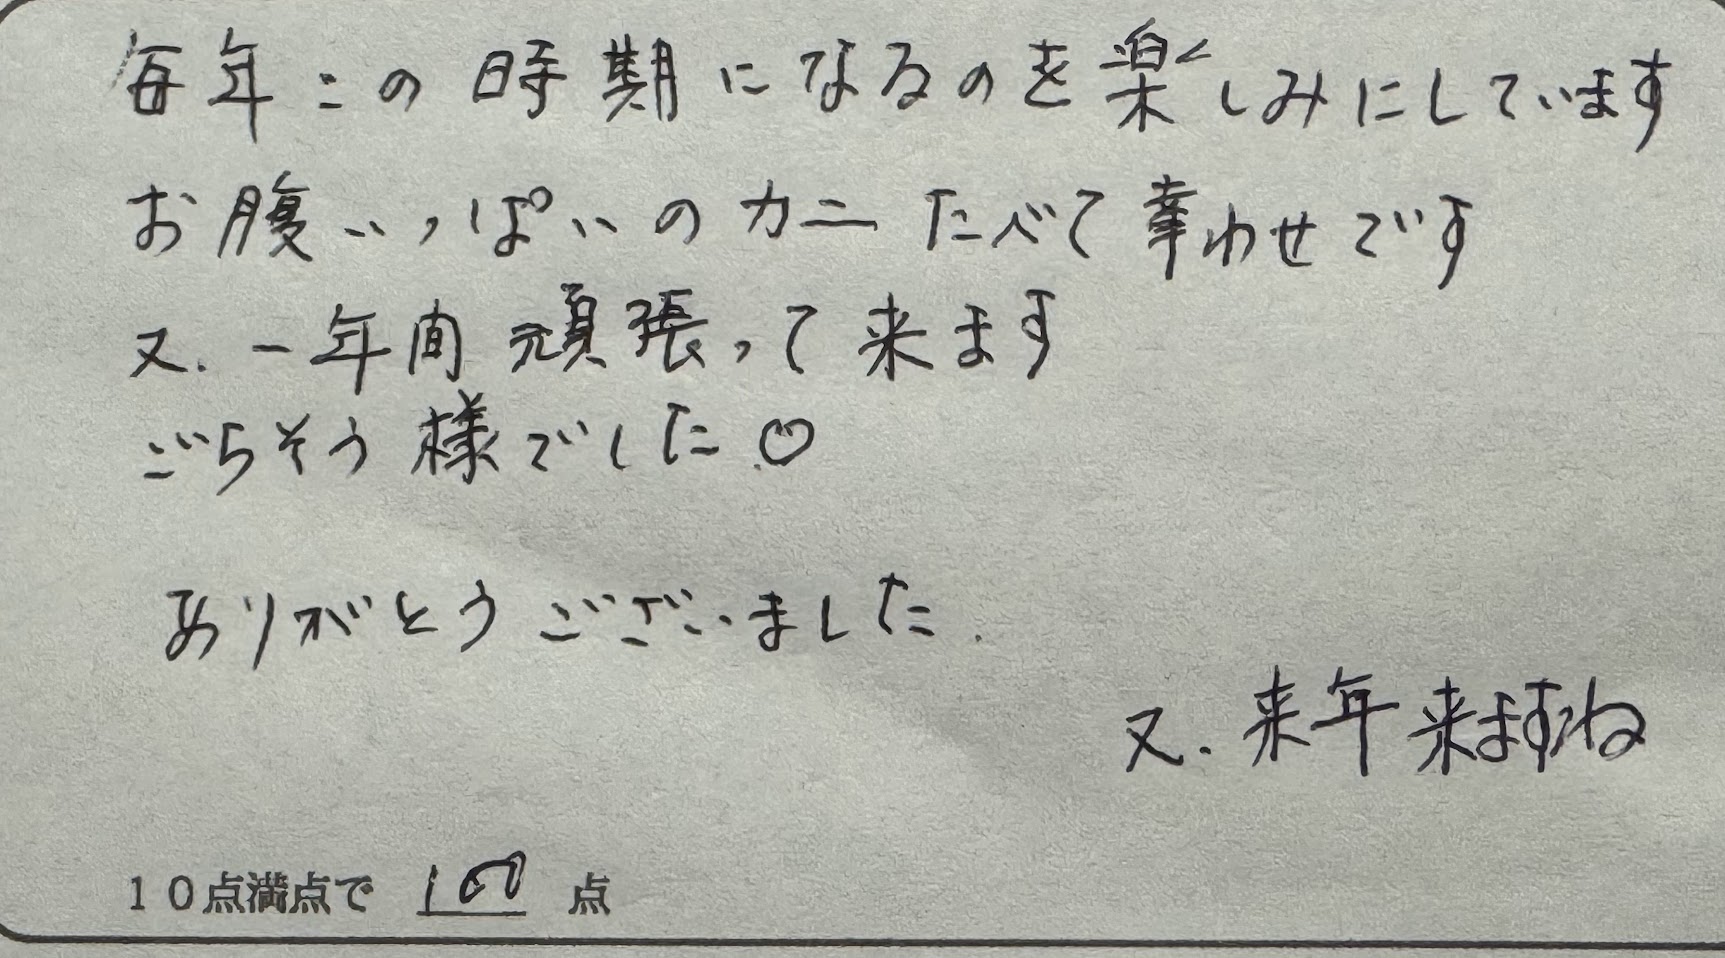 毎年この時期になるのを楽しみにしています
お腹いっぱいのカニたべて幸わせです
又.一年間頑張って来ます
ごちそう様でした♡
ありがとうございました.
又.来年来ますね
10点満点で 100 点